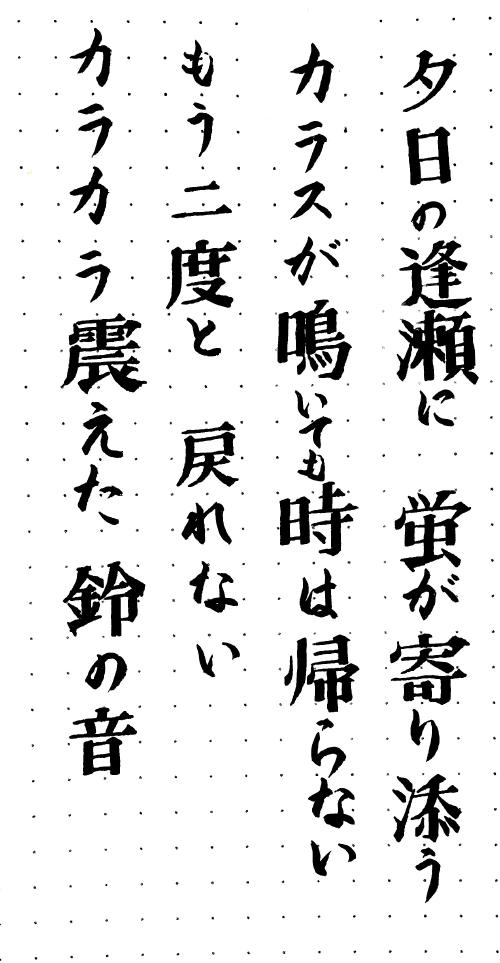 夕日の逢瀬に　蛍が寄り添う
カラスが鳴いても時は帰らない
もう二度と　戻れない
カラカラ震えた　鈴の音